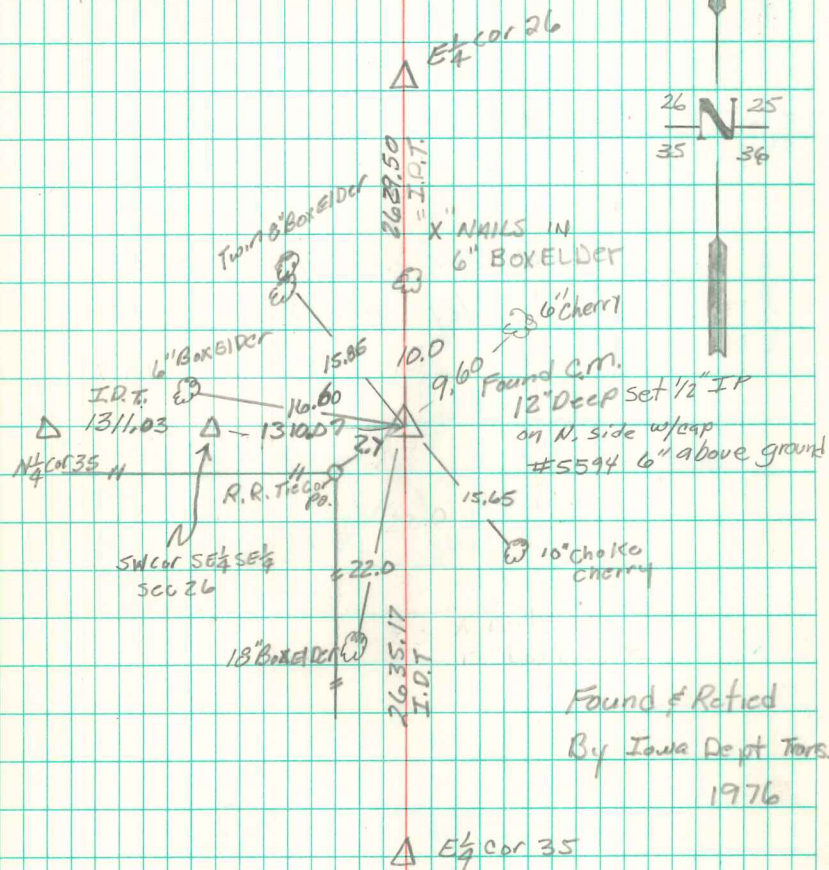 E 1/4 cor 26
26 N 25
35 36
2639.50
= I.D.T.
Twin 8" BoxElDer
X" NAILS IN
6" BOXELDer
6" Cherry
6" BoxElDer
15.86
10.0
9.60
Found C.M.
12" Deep set 1/2" IP
on N. side w/cap
#5594 6" above ground
I.D.T.
1311.03
16.60
1310.07
2.7
N 1/4 Cor 35
R.R. Tie Cor
Po.
15.65
10" Choke
cherry
SW cor SE 1/4 SE 1/4
Sec 26
22.0
18" BoxElDer
2635.17
I.D.T
Found & Retied
By Iowa Dept Trans.
1976
E 1/4 cor 35